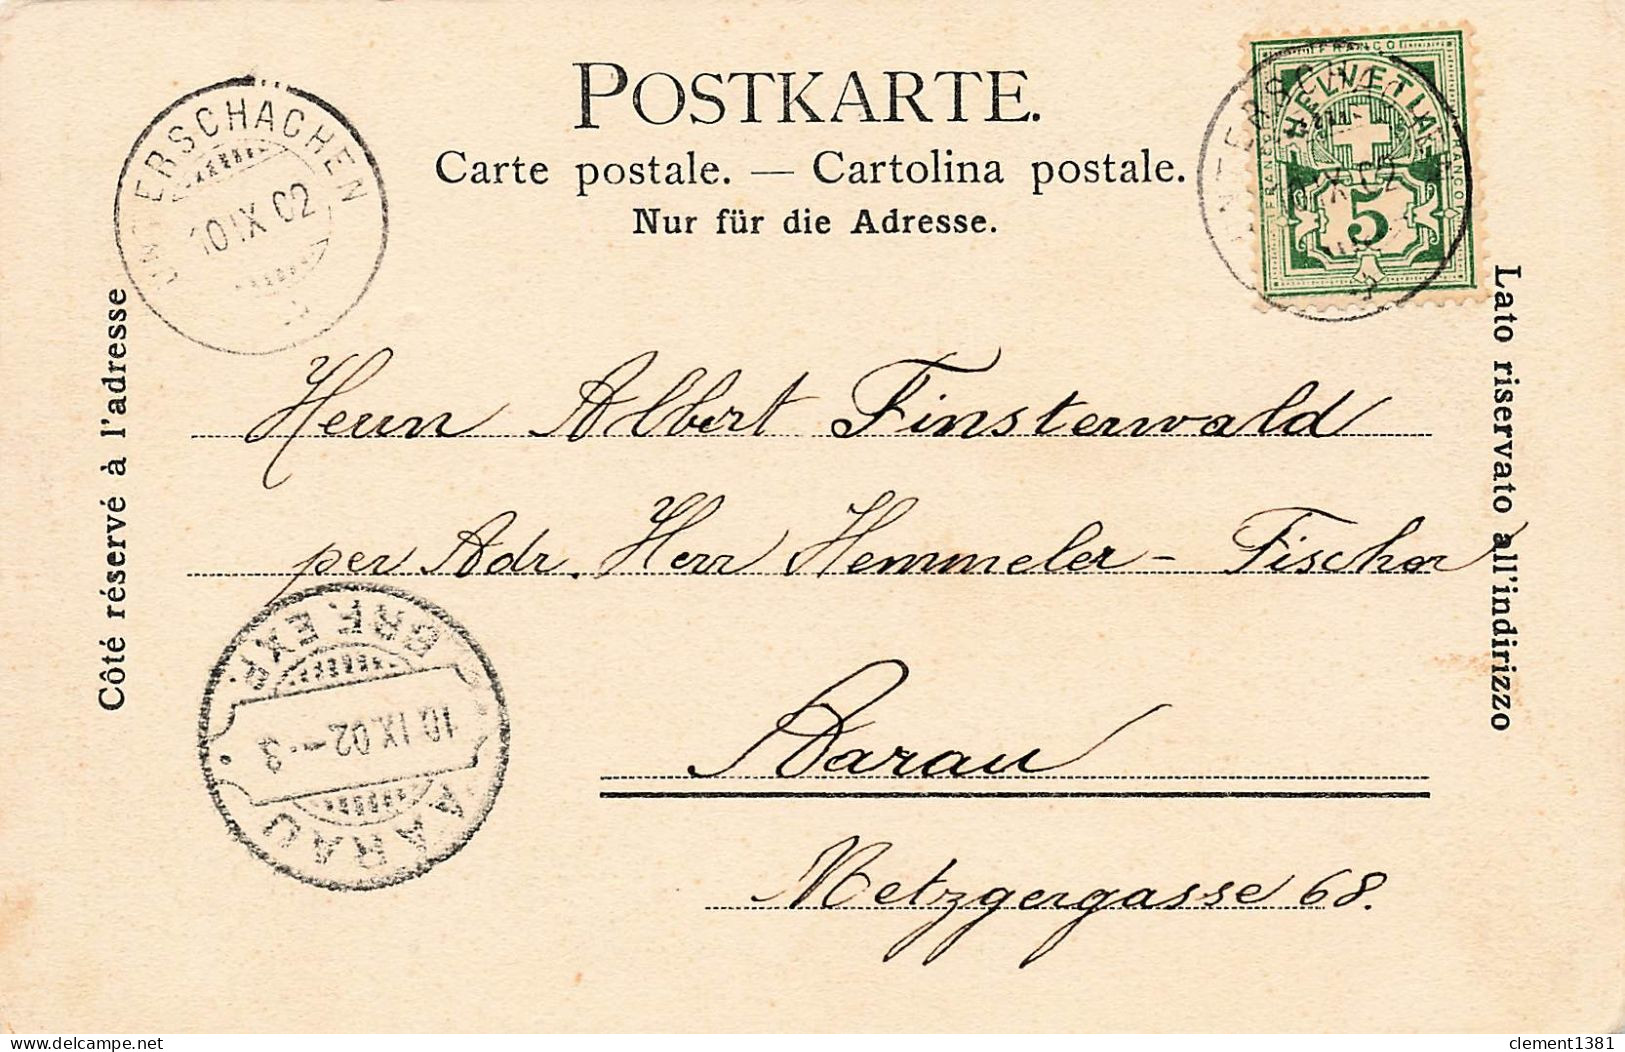 POSTKARTE.
Carte postale. — Cartolina postale.
Nur für die Adresse.
Côté réservé à l'adresse
Lato riservato all'indirizzo
UNTERSCHÄCHEN
10 IX 02
FRANCO
HELVETIA
FRANCO
FRANCO
5
IX 02
Herrn Albert Finsterwald
per Adr. Herr Hemmeler-Fischer
Aarau
Metzgergasse 68.
AARAU
BRF. EXP.
10 IX 02 – 3
clement1381